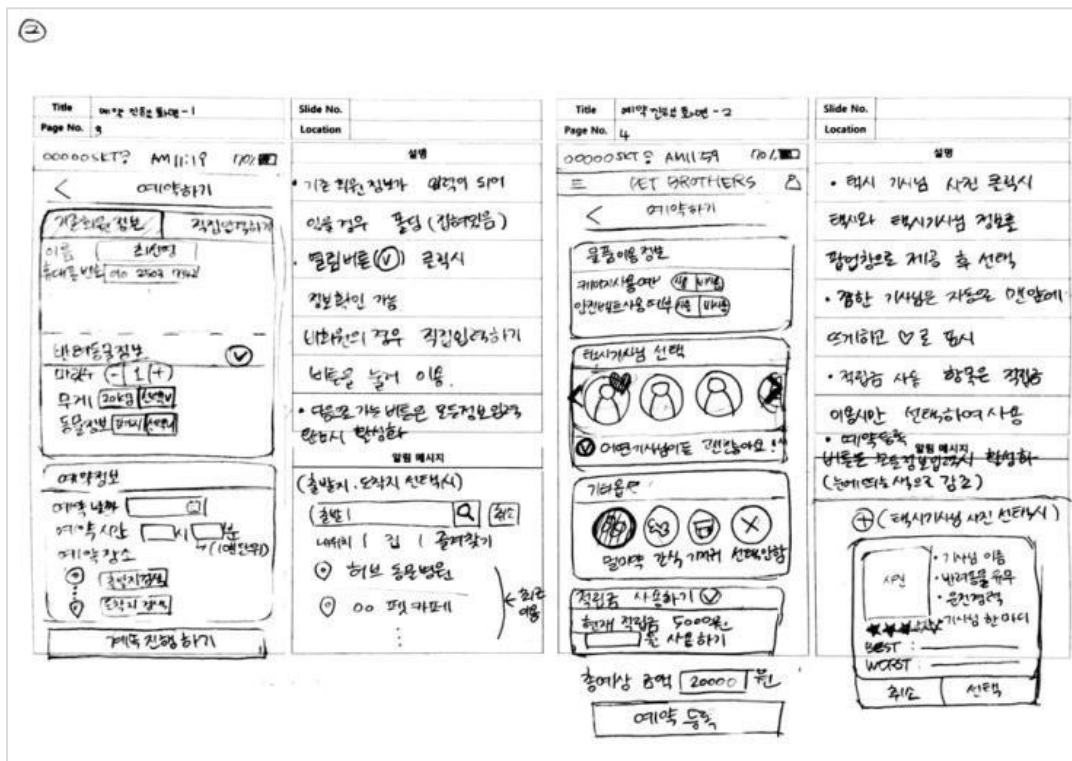 ②
Title 예약 진행 화면 - 1
Page No. 3
00000SKT AM 11:19 170%
<
예약하기
기존회원정보 직접입력하기
이름 최선영
휴대폰번호 010 2503
반려동물정보
마릿수 - 1 +
무게 20kg 선택∨
동물정보 선택∨
예약정보
예약 날짜
예약 시간 시 분
→(10분단위)
예약 장소
출발지검색
도착지 검색
계속 진행하기
Slide No.
Location
설명
• 기존 회원 정보가 입력이 되어
있을 경우 폴딩 (접혀있음)
• 열림버튼(∨) 클릭시
정보확인 가능
비회원의 경우 직접입력하기
버튼을 눌러 이용.
• 다음으로 가는 버튼은 모든정보 입력
완료시 활성화
알림 메시지
(출발지·도착지 선택시)
출발 | 취소
내위치 | 집 | 즐겨찾기
허브 동물병원
00 펫 카페
← 최근
이용
Title 예약 진행 화면 - 2
Page No. 4
00000SKT AM 11:59 170%
PET BROTHERS
<
예약하기
물품이용정보
케이지사용여부 사용 미사용
안전벨트사용여부 사용 미사용
택시기사님 선택
어떤기사님이든 괜찮아요!
기타옵션
멀미약 간식 기저귀 선택안함
적립금 사용하기
현재 적립금 5000원
원 사용하기
총예상 금액 20000 원
예약 등록
Slide No.
Location
설명
• 택시 기사님 사진 클릭시
택시와 택시기사님 정보를
팝업창으로 제공 후 선택
• 찜한 기사님은 자동으로 맨앞에
뜨게하고 ♡로 표시
• 적립금 사용 항목은 적립금
이용시만 선택하여 사용
• 예약등록
버튼은 모든정보입력시 활성화
알림 메시지
(눈에띄는 색으로 강조)
⊕ (택시기사님 사진 선택시)
사진
• 기사님 이름
• 반려동물 유무
• 운전경력
• 기사님 한 마디
★★★☆☆
BEST :
WORST :
취소 선택